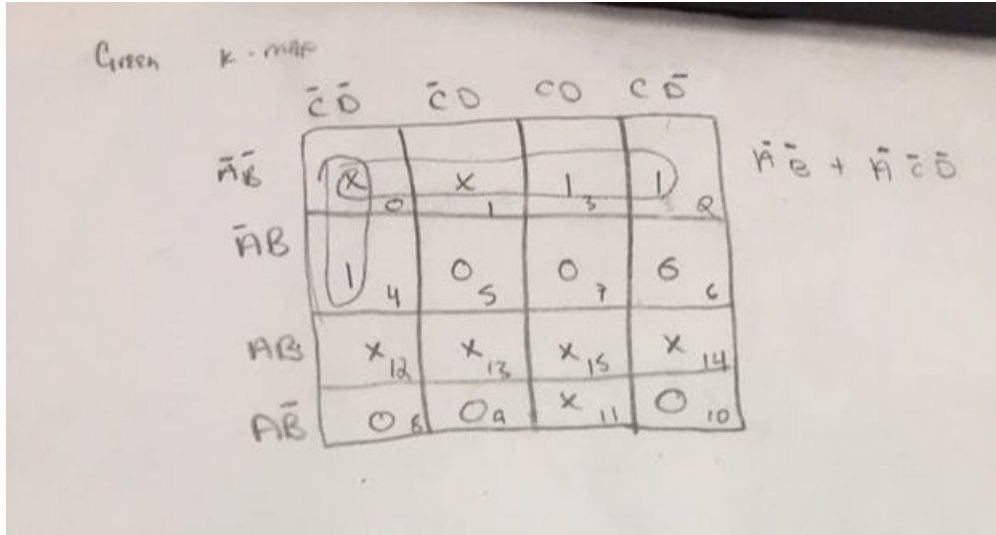 Green K-map
C̄D̄ C̄D CD CD̄
ĀB̄ X 0 X 1 1 3 1 2 ĀB̄ + ĀC̄D̄
ĀB 1 4 0 5 0 7 0 6
AB X 12 X 13 X 15 X 14
AB̄ 0 8 0 9 X 11 0 10